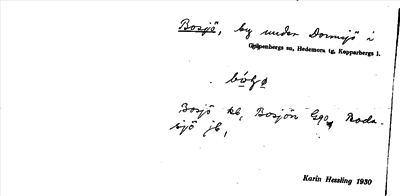 Bosjö, by under Dormsjö i
Garpenbergs sn, Hedemora tg, Kopparbergs l.
Bosjö kb, Bosjön G90,
sjö jb,
Karin Hessling 1930